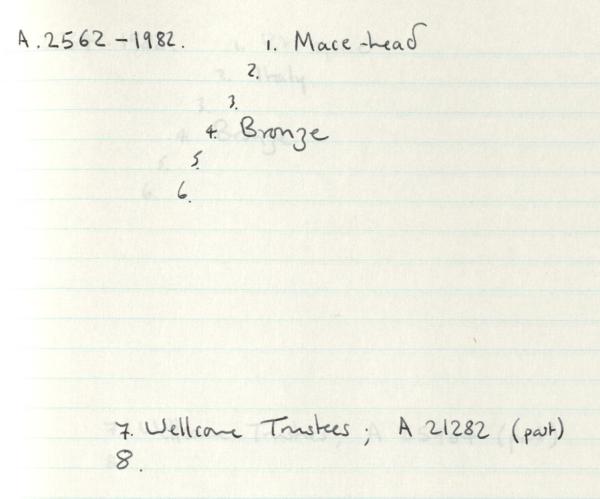 A.2562-1982. 1. Mace-head
2.
3.
4. Bronze
5.
6.
7. Wellcome Trustees; A 21282 (part)
8.